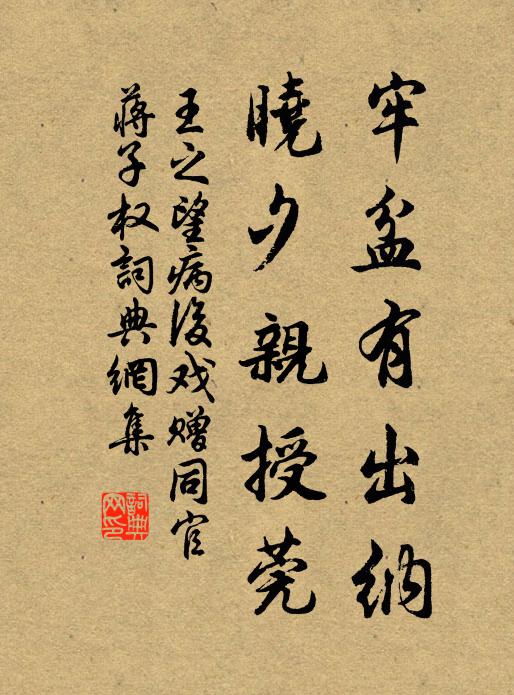 牢盆有出纳
曉夕親授莞
王之望病後戏赠同官
蒋子权詞典網集
詞典网印